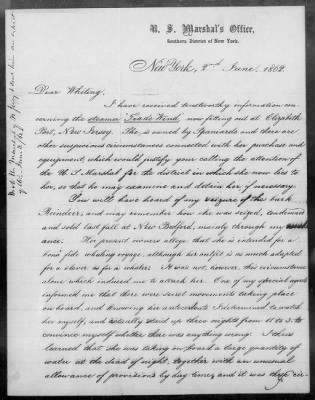 U. S. Marshal's Office,
Southern District of New York.
New York, 2nd June, 1862
Dear Whiting,
I have received trustworthy information con-
cerning the steamer "Trade Wind" now fitting out at Elizabeth
Port, New Jersey. She is owned by Spaniards and there are
other suspicious circumstances connected with her purchase and
equipment, which would justify your calling the attention of
the U S Marshal for the district in which she now lies to
her, so that he may examine and detain her if necessary.
You will have heard of my seizure of the bark
Reindeer, and may remember how she was seized, condemned
and sold last fall at New Bedford, mainly through my
ance. Her present owners allege that she is intended for a
bona fide whaling voyage, although her outfit is as much adapted
for a slaver as for a whaler. It was not, however, this circumstance
alone which induced me to attack her. One of my special agents
informed me that there were secret movements taking place
on board, and knowing her antecedents I determined to watch
her myself, and actually staid up three nights from 11 to 3 to
convince myself whether there was anything wrong. I thus
learned that she was taking on board a large quantity of
water at the dead of night, together with an unusual
allowance of provisions by day time; and it was these cir-